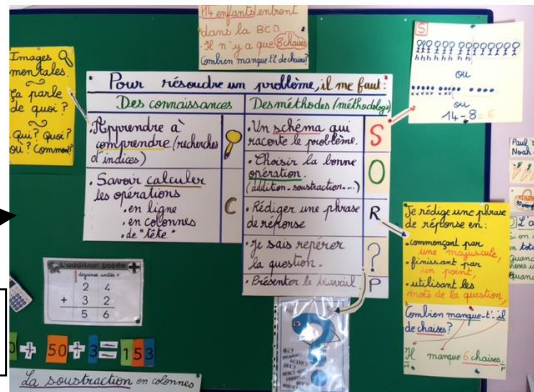 14 enfants entrent
dans la BCD.
Il n'y a que 8 chaises
Combien manque t'il de chaises?
Images
mentales.
Ça parle
de quoi?
Qui? Quoi?
Où? Comment?
Pour résoudre un problème, il me faut:
Des connaissances
Des méthodes (méthodologie)
• Apprendre à
comprendre (recherches
d'indices)
• Savoir calculer
les opérations
• en ligne
• en colonnes
• de "tête"
C
• Un schéma qui
raconte le problème.
S
• Choisir la bonne
opération.
(addition-soustraction...)
O
• Rédiger une phrase
de réponse
R
• Je sais repérer
la question.
?
• Présenter le travail.
P
S
ou
ou
14-8
Je rédige une phrase
de réponse en:
• commençant par
une majuscule,
• finissant par
un point,
• utilisant les
mots de la question
Combien manque-t'il
de chaises?
Il manque 6 chaises.
L'addition posée
dizaines unités
2 4
+ 3 2
5 6
0 + 50 + 3 = 153
La soustraction en colonnes
Paul
Noah